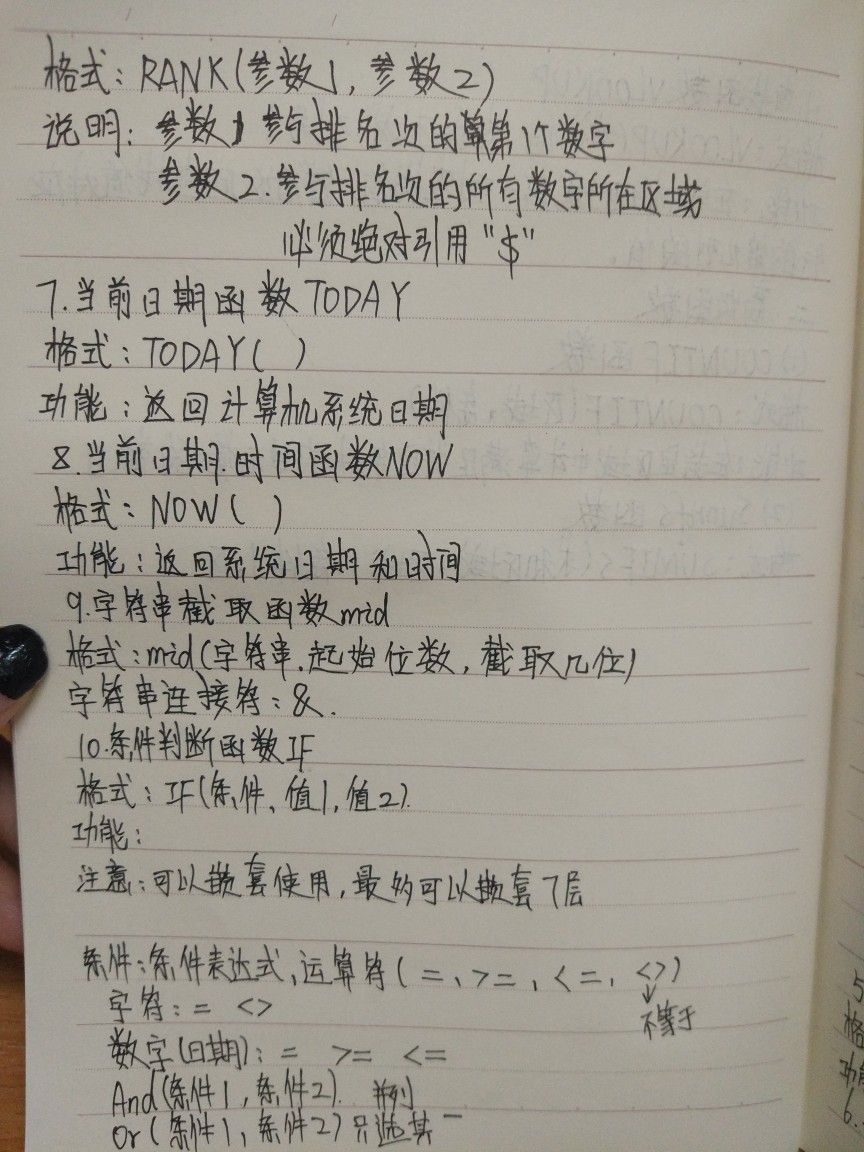 格式：RANK(参数1，参数2)
说明：参数1 参与排名次的第1个数字
参数2.参与排名次的所有数字所在区域
必须绝对引用"$"
7.当前日期函数TODAY
格式：TODAY( )
功能：返回计算机系统日期
8.当前日期.时间函数NOW
格式：NOW( )
功能：返回系统日期和时间
9.字符串截取函数mid
格式：mid(字符串,起始位数,截取几位)
字符串连接符：&.
10.条件判断函数IF
格式：IF(条件、值1,值2).
功能：
注意：可以嵌套使用,最多可以嵌套7层
条件：条件表达式,运算符(=、>=,<=,<>)
不等于
字符：= <>
数字(日期)：= >= <=
And(条件1,条件2). 并列
Or(条件1,条件2)只选其一